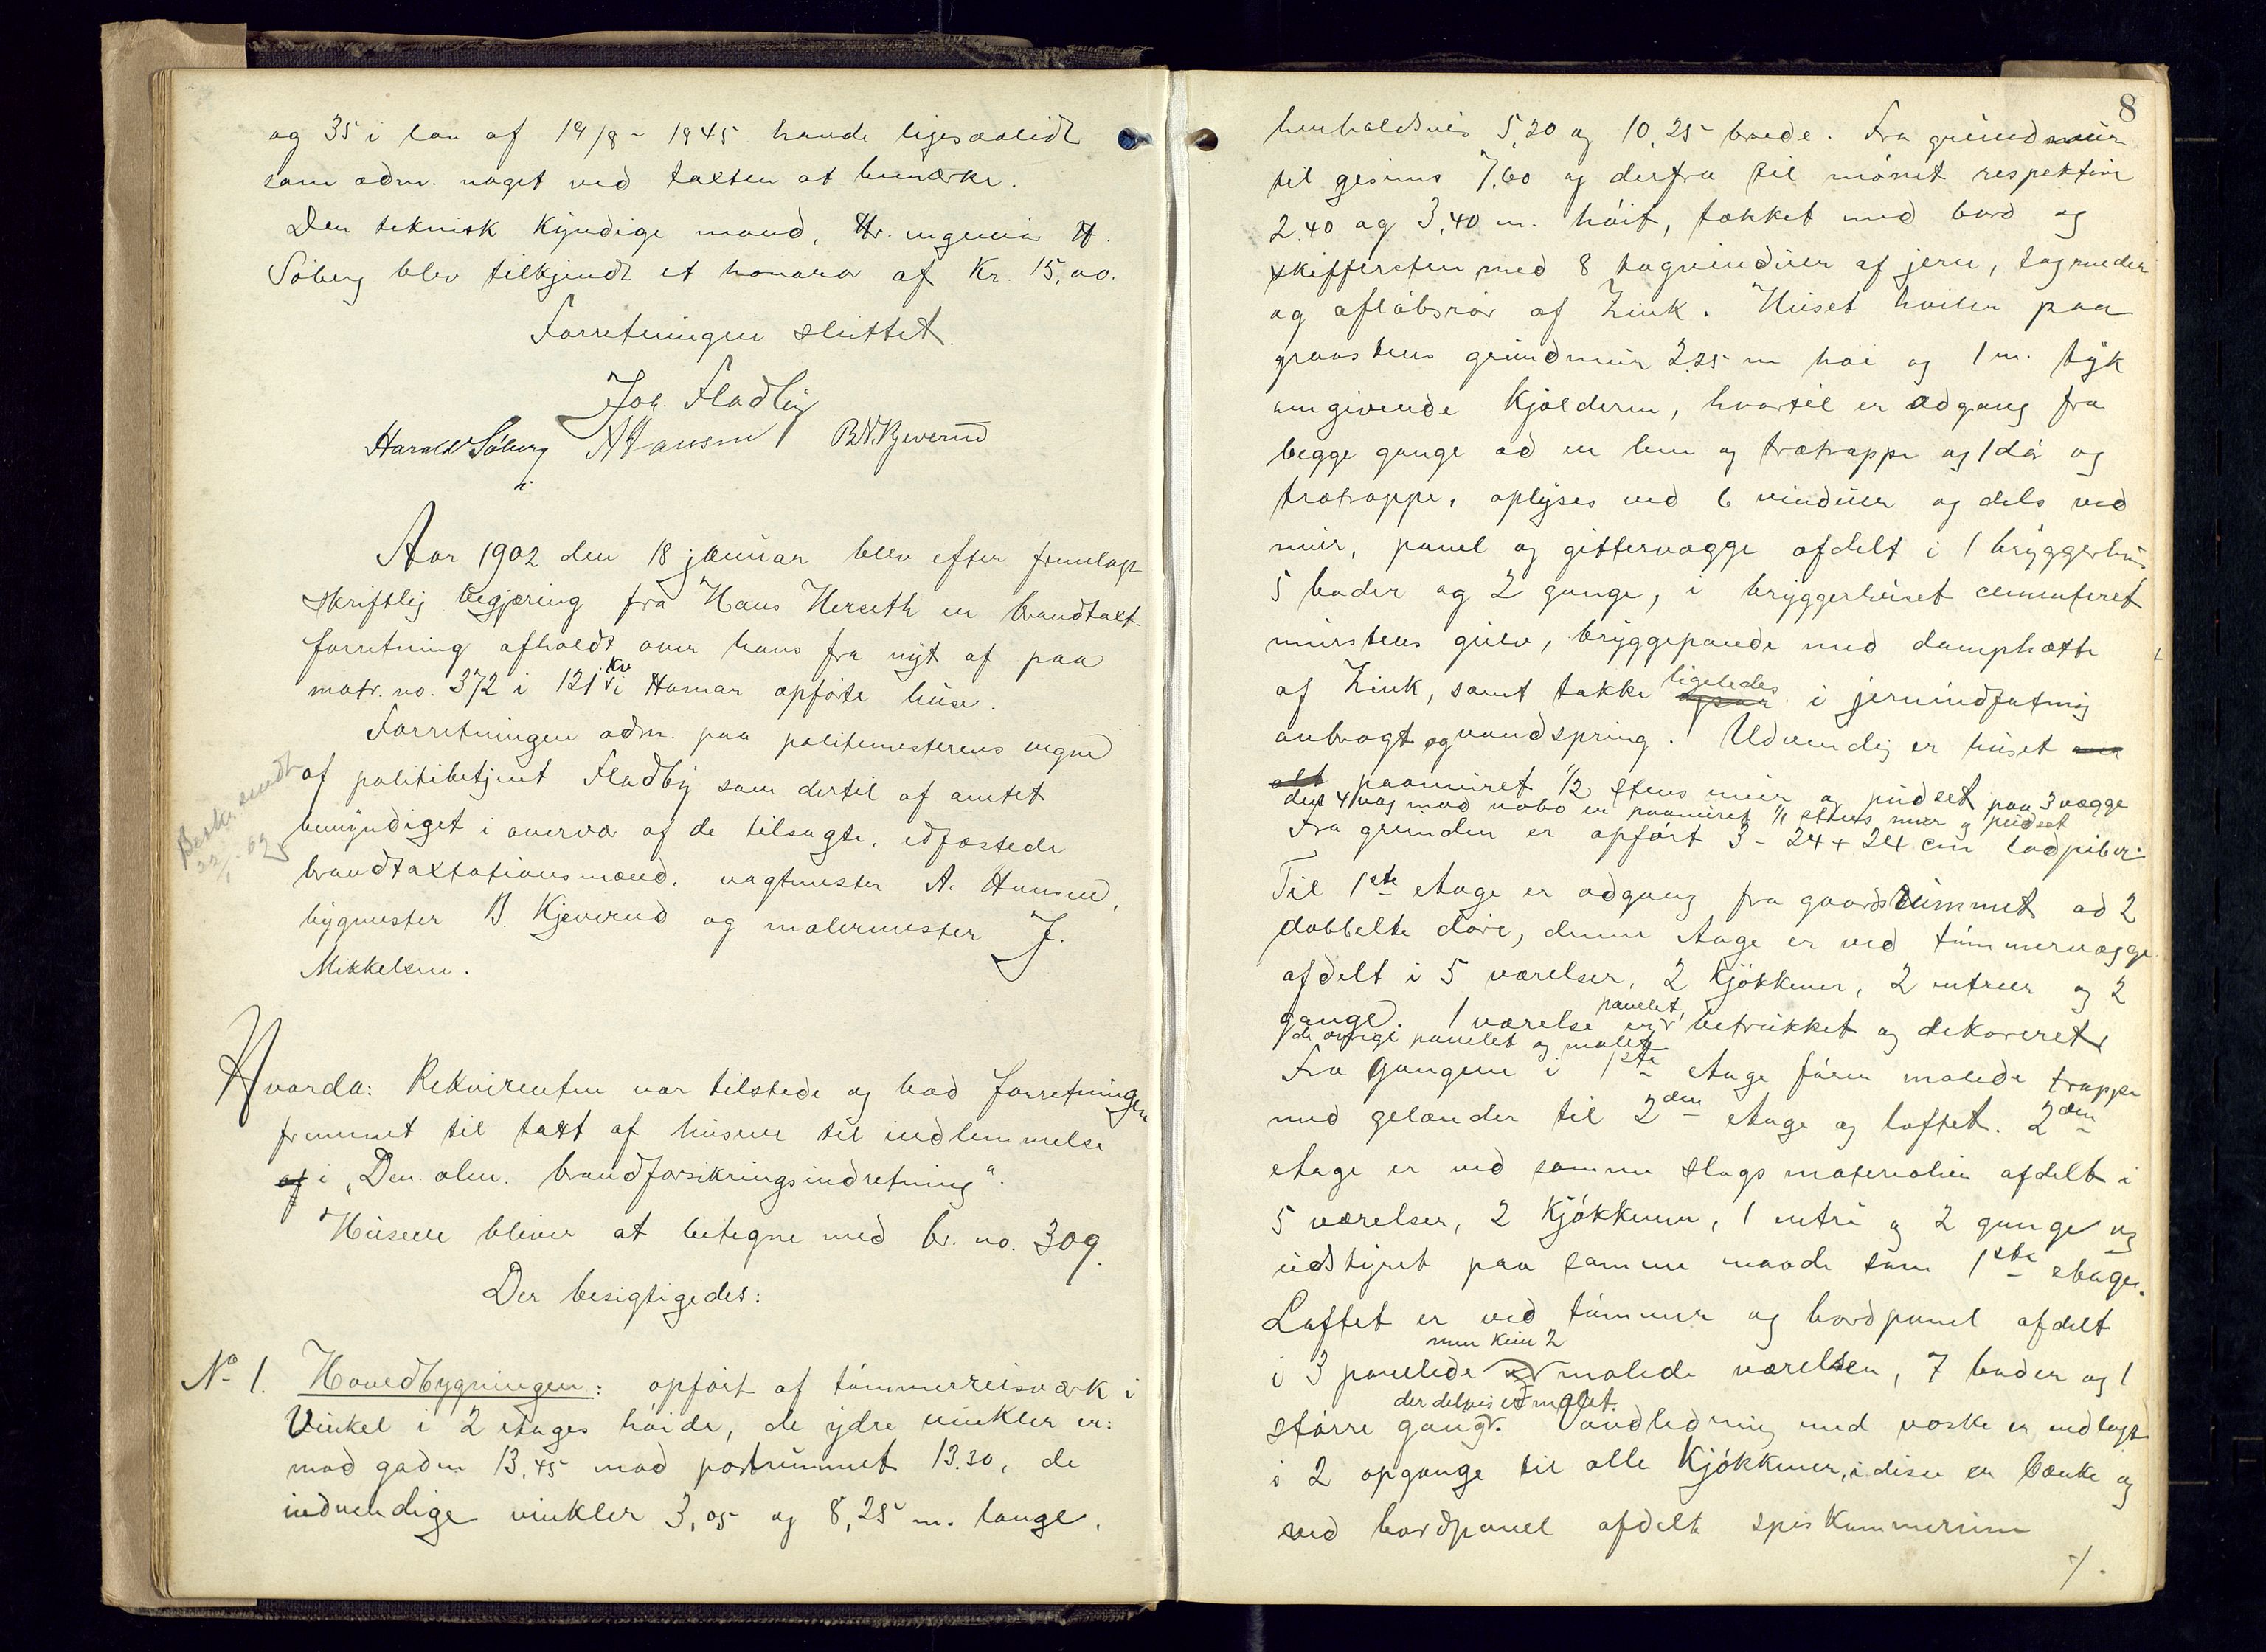 og 35 i lov af 19/8 - 1845 havde ligesaalidt
som adm. noget ved taxten at bemærke.
Den teknisk kyndige mand, Hr. ingeniør H.
Söberg blev tilkjendt et honorar af Kr. 15,00.
Forretningen sluttet.
Joh. Fladby
Harald Söberg A Hansen B.N. Kjeverud
Aar 1902 den 18 januar blev efter fremlagt
skriftlig begjæring fra Hans Herseth en brandtaxt-
forretning afholdt over hans fra nyt af paa
matr. no. 372 i 121 kv i Hamar opförte huse.
Forretningen adm. paa politimesterens vegne
af politibetjent Fladby som dertil af amtet
bemyndiget i overvær af de tilsagte, edfæstede
brandtaxtationsmænd, vagtmester A. Hansen,
bygmester B. Kjeverud og malermester J.
Mikkelsen.
Beskr. sendt
22/1-02
Hvorda: Rekvirenten var tilstede og bad forretningen
fremmet til taxt af husene til indlemmelse
af i „Den alm. brandforsikringsindretning“.
Husene bliver at betegne med br. no. 309.
Der besigtigedes:
No 1. Hovedbygningen: opfört af tömmerreisværk i
Vinkel i 2 etages höide, de ydre vinkler er:
mod gaden 13,45 mod portrummet 13.30, de
indvendige vinkler 3,05 og 8,25 m. lange,
8
henholdsvis 5,20 og 10,25 brede. Fra grundmur
til gesims 7,60 og derfra til mönet respektive
2.40 og 3,40 m. höit, tækket med bord og
skiffersten, med 8 tagvinduer af jern, tagrender
og aflöbsrör af Zink. Huset hviler paa
graastens grundmur 2,25 m höi og 1 m. tyk
omgivende Kjælderen, hvortil er adgang fra
begge gange ad en lem og trætrappe og 1 dör og
trætrappe, oplyses ved 6 vinduer og dels ved
mur, panel og gittervægge afdelt i 1 bryggerhus
5 boder og 2 gange, i bryggerhuset cementeret
murstens gulv, bryggepande med damphætte
af Zink, samt takke ligeledes i jernindfatning
anbragt og vandspring. Udvendig er huset
paamuret 1/2 stens mur og pudset paa 3 vægge
den 4 væg mod nabo er paamuret 1/1 stens mur og pudset
Fra grunden er opfört 3 - 24 + 24 cm lodpiber.
Til 1ste etage er adgang fra gaardsrummet ad 2
dobbelte döre, denne etage er ved tömmervægge
afdelt i 5 værelser, 2 Kjökkener, 2 entreer og 2
gange. 1 værelse er panelet, betrukket og dekoreret,
de övrige panelet og malet
Fra gangene i 1ste etage förer malede trappe
med gelænder til 2den etage og loftet. 2den
etage er ved samme slags materialier afdelt i
5 værelser, 2 Kjökkener, 1 entré og 2 gange og
udstyret paa samme maade som 1ste etage.
Loftet er ved tömmer og bordpanel afdelt
i 3 panelede men kun 2 malede værelser, 7 boder og 1
större gang der delvis er malet. Vandledning med vaske er indlagt
i 2 opgange til alle Kjökkener, i disse er bænke og
ved bordpanel afdelt spiskammerrum